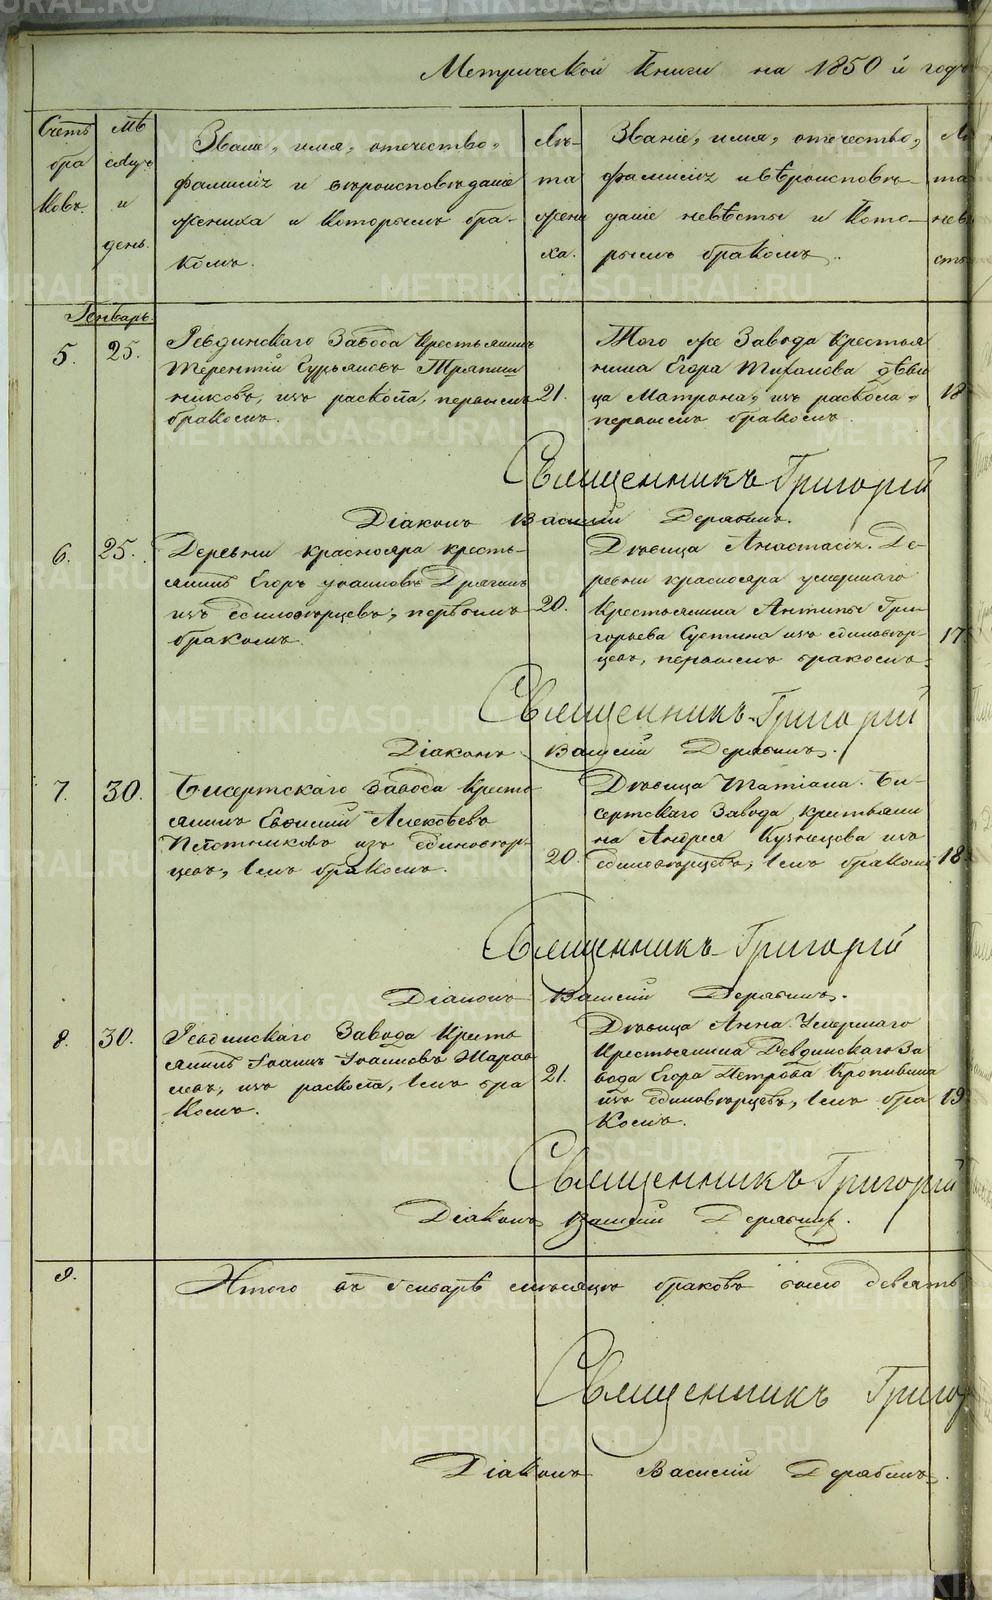 Метрической Книги на 1850й годъ
Счетъ браковъ.
Мѣсяцъ и день.
Званіе, имя, отечество,
фамилія и вѣроисповѣданіе
жениха и которымъ бра-
комъ.
Лѣ-
та
жени
ха.
Званіе, имя, отечество,
фамилія и вѣроисповѣ-
даніе невѣсты и кото-
рымъ бракомъ.
Генварь.
5.
25.
Ревдинскаго Завода Крестьянинъ
Терентій Гурьяновъ Тряпиш
никовъ, изъ раскола, первымъ
бракомъ.
21.
Того же Завода Крестья
нина Егора дѣви
ца Матрона, изъ раскола,
первымъ бракомъ.
18
Священникъ Григорій
Діаконъ Василій Дерябинъ.
6.
25.
Деревни Краснояра кресть-
янинъ Егоръ Іоанновъ Драгинъ
изъ единовѣрцевъ, первымъ
бракомъ.
20.
Дѣвица Анастасія. Де-
ревни Краснояра умершаго
Крестьянина Антипы Гри-
горьева Суетина изъ единовѣр-
цевъ, первымъ бракомъ.
17
Священникъ Григорій
Діаконъ Василій Дерябинъ.
7.
30.
Бисертскаго Завода Кресть
янинъ Евфимій Алексѣевъ
Плотниковъ изъ единовѣр-
цевъ, 1мъ бракомъ.
20.
Дѣвица Татіана. Би-
сертскаго Завода, крестьяни
на Андрея Кузнецова изъ
единовѣрцевъ, 1мъ бракомъ
18
Священникъ Григорій
Діаконъ Василій Дерябинъ.
8.
30.
Ревдинскаго Завода Кресть
янинъ Іоаннъ Іоанновъ
изъ раскола, 1мъ бра
комъ.
21.
Дѣвица Анна. Умершаго
Крестьянина Ревдинскаго За
вода Егора Петрова Кропивина
изъ единовѣрцевъ, 1мъ бра
комъ.
19
Священникъ Григорій
Діаконъ Василій Дерябинъ.
9.
Итого въ Генварѣ мѣсяцѣ браковъ было девять
Священникъ Григор
Діаконъ Василій Дерябинъ.
METRIKI.GASO-URAL.RU